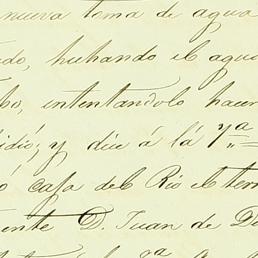 nueva toma de agua
do, luchando el agua
ho, intentandolo hacer
idió; y dice á la 7ª
ó casa del Rio el ter
ente D. Juan de D